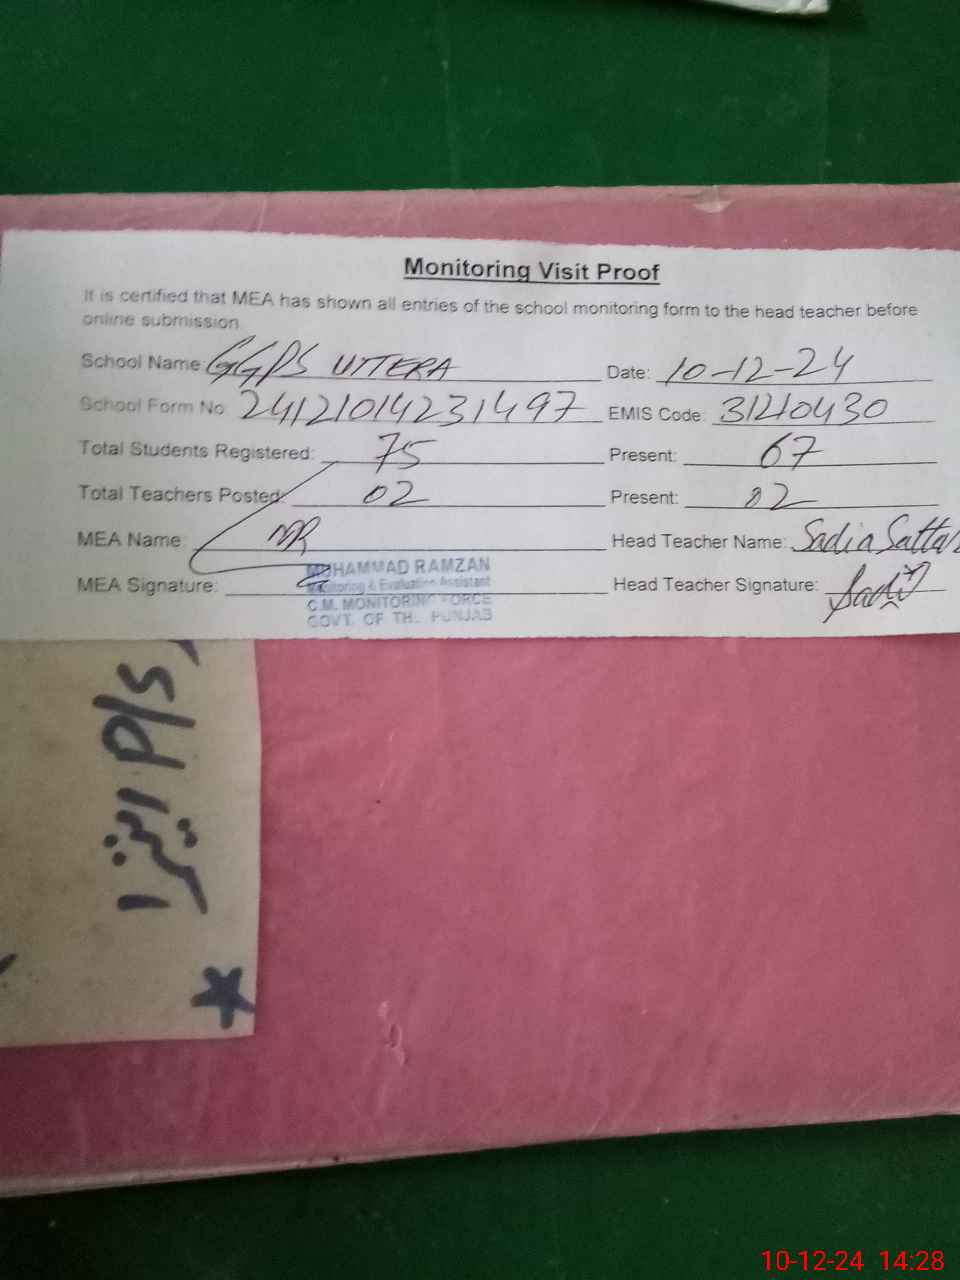 Monitoring Visit Proof
It is certified that MEA has shown all entries of the school monitoring form to the head teacher before
online submission
School Name: GGPS UTTERA Date: 10-12-24
School Form No: 24121014231497 EMIS Code: 31210430
Total Students Registered: 75 Present: 67
Total Teachers Posted: 02 Present: 02
MEA Name: MR Head Teacher Name: Sadia Sattar
MEA Signature: Head Teacher Signature: Sadia
MUHAMMAD RAMZAN
Monitoring & Evaluation Assistant
C.M. MONITORING FORCE
GOVT. OF THE PUNJAB
P/S اتیرا
10-12-24 14:28